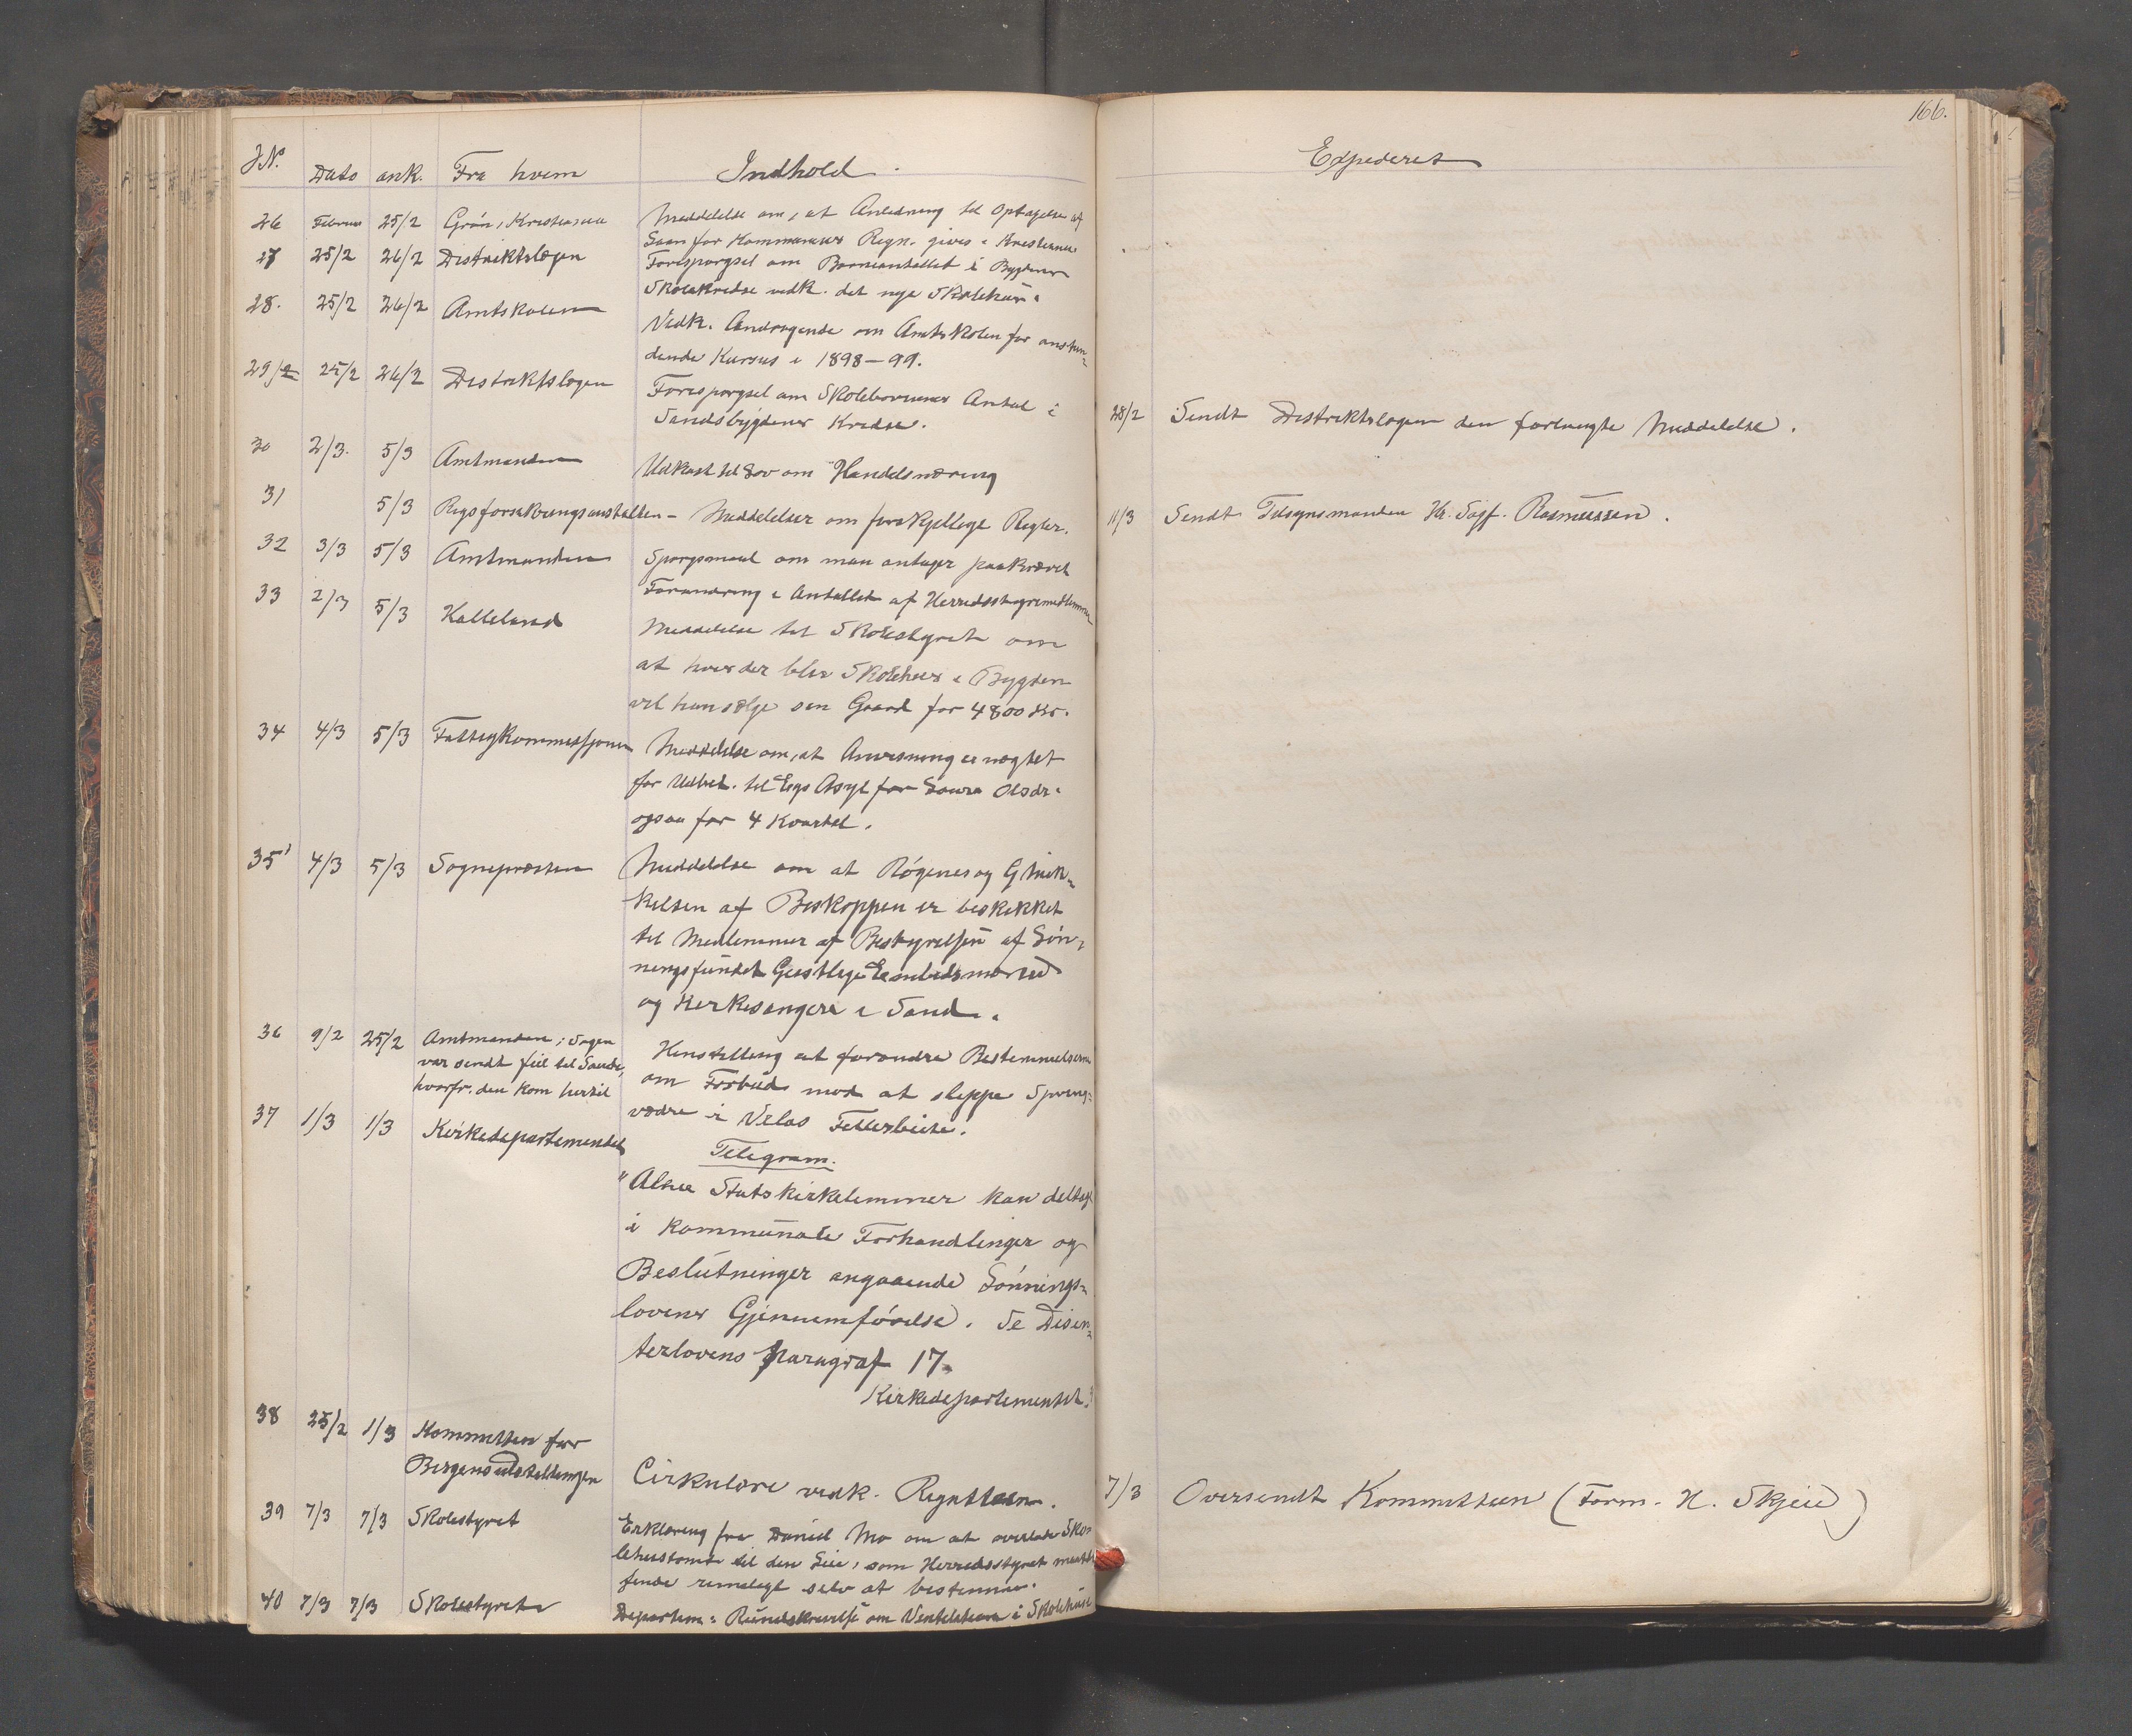 166.
J№. Dato ank. Fra hvem Indhold.
Expederet
26 Februar 25/2 Grön, Kristiania Meddelelse om, at Anledning til Optagelse af
Laan for Kommuners Regn. gives i Kristiania
27 25/2 26/2 Distriktslægen Forespørgsel om Barneantallet i Bygdens
Skolekredse vedk. det nye Skolehus.
28. 25/2 26/2 Amtskolen Vedk. Andragende om Amtskolen for anstun-
dende Kursus i 1898-99.
29/2 25/2 26/2 Distriktslægen Forespørgsel om Skolebørnenes Antal i
Sandsbygdens Kredse.
28/2 Sendt Distriktslægen den forlangte Meddelelse.
30 2/3. 5/3 Amtmanden Udkast til Lov om Handelsnæring
31 5/3 Rigsforsikringsanstalten - Meddelelser om forskjellige Regler.
11/3 Sendt Tilsynsmanden Hr. Sagf. Rasmussen.
32 3/3 5/3 Amtmanden Spørgsmaal om man antager paakrævet
Forandring i Antallet af Herredsstyremedlemmer
33 2/3 5/3 Kalleland Meddelelse til Skolestyret om
at hvis der blir Skolehus i Bygden
vil han sælge sin Gaard for 4800 Kr.
34 4/3 5/3 Fattigkommissjonen Meddelelse om, at Anvisning er nægtet
for Udbet. til Eegs Asyl for Laura Olsdr.
ogsaa for 4 Kvartal.
35 4/3 5/3 Sognepræsten Meddelelse om at Røgenes og G Mik-
kelsen af Biskoppen er beskikket
til Medlemmer af Bestyrelsen af Løn-
ningsfundet Geistlige Embedsmænd
og Kirkesangere i Sand.
36 9/2 25/2 Amtmanden; Sagen
var sendt feil til Saude,
hvorfr. den kom hertil
Henstilling at forandre Bestemmelserne
om Forbud mod at slippe Spring-
vædre i Velas Fellesbeite.
37 1/3 1/3 Kirkedepartementet
Telegram.
"Alene Statskirkelemmer kan deltage
i kommunale Forhandlinger og
Beslutninger angaaende Lønnings-
lovens Gjennemförelse. Se Disen-
terlovens Paragraf 17.
Kirkedepartementet."
38 25/2 1/3 Kommitteen for
Bergensudstillingen Cirkulære vedk.
7/3 Oversendt Kommitteen (Form. H. Skjeie)
39 7/3 7/3 Skolestyret Erklæring fra Daniel Mo om at overlade Sko-
lehustomt til den Leie, som Herredsstyret maatte
finde rimeligt selv at bestemme.
40 7/3 7/3 Skolestyret Departem: Rundskrivelse om Ventilation i Skolehuse